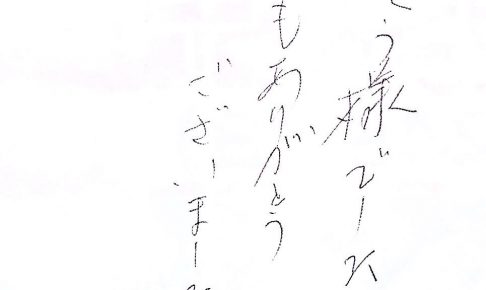 う様でした
もありがとう
ございまし